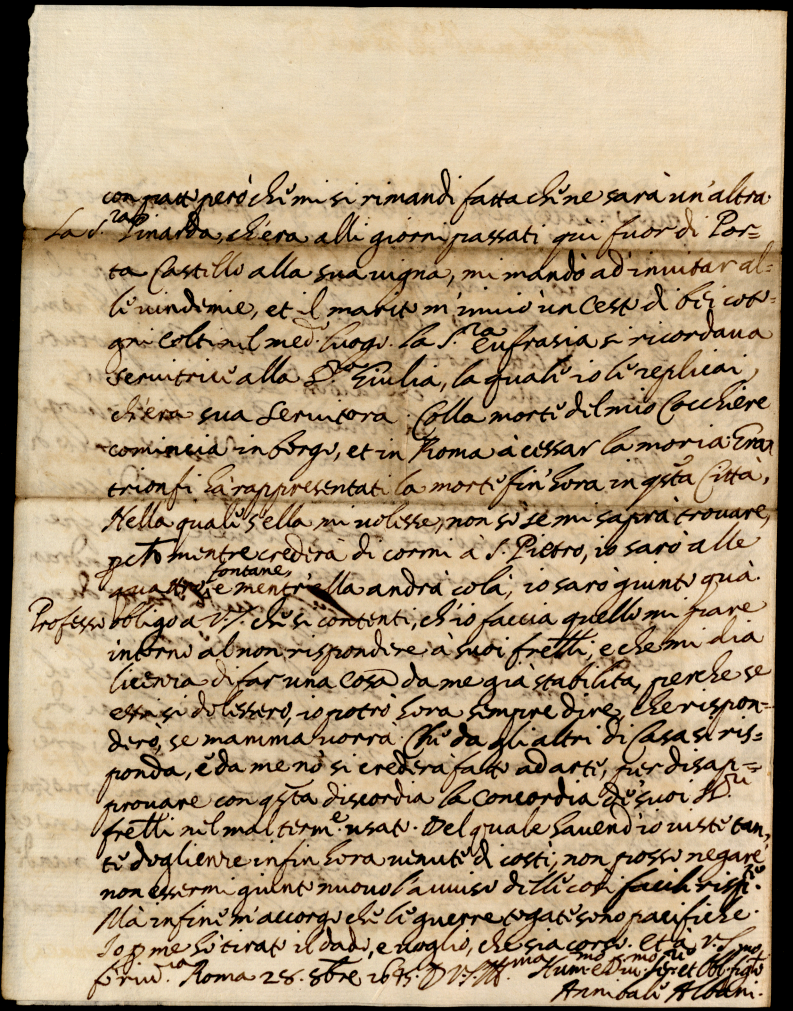 con patto però che mi si rimandi fatta che ne sarà un'altra.
La S.ra Pinarda, ch'era alli giorni passati qui fuor di Por=
ta Castello alla sua uigna, mi mandò ad inuitar al=
le uindemie, et il marito m'inuiò un cesto di bei coto=
gni colti nel med.o luogo. La S.ra Eufrasia si ricordaua
seruitrice alla S.ra Giulia, la quale io le replicai,
ch'era sua seruitora. Colla morte del mio Cocchiere
comincia in borgo, et in Roma à cessar la moria.
trionfi hà rappresentati la morte fin'hora in q.sta Città,
Nella quale s'ella mi uolesse, non sò se mi saprà trouare,
mentre crederà di corrmi à S. Pietro, io sarò alle
quattro fontane, e mentr'ella andrà colà, io sarò giunto quà.
Professo obligo a V.S. che si contenti, ch'io faccia quello mi pare
intorno al non rispondere à suoi fr̃elli, e che mi dia
licenza di far una cosa da me già stabilita, perche se
essi si dolessero, io potrò hora sempre dire, che rispon=
derò, se mamma uorrà. Che da gli altri di Casa si ris=
ponda, e da me nò, si crederà fatto ad arte, per disap=
prouare con q.sta discordia la Concordia de suoi
fr̃elli nel mal term.e usato. Del quale hauend'io uisto tan=
te doglienze infin hora uenute di costì, non posso negare
non essermi giunto nuouo l'auuiso delle così facili risp.te
Mà infine m'accorgo che le guerre togate sono pacifiche.
Io p me hò tirato il dado, e uoglio, che sia corso. Et à V.S.
fò riu.za Roma 28. 8bre 1645. D V.S. Ill.ma Hum.mo e Diu.mo Ser.re et Obl.mo figlio
Annibale Albani.